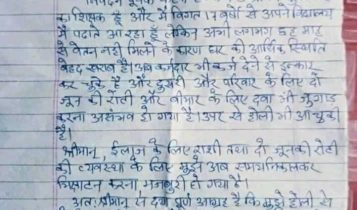 का शिक्षक हूँ और मैं विगत 17 वर्षों से अपने विद्यालय
में पढाते आ रहा हूँ लेकिन अभी लगभग छह माह
से वेतन नहीं मिलने के कारण घर की आर्थिक स्थिति
बेहद खराब है। अब कर्जदार भी कर्ज देने से इन्कार
कर चुके हैं और दुखी और परिवार के लिए दो
जून की रोटी और बीमार के लिए दवा भी जुगाड़
करना असंभव हो गया है। ऊपर से होली भी आ चुकी
है।
श्रीमान्, ईलाज के लिए राशी तथा दो जून की रोटी
की व्यवस्था के लिए मुझे अब समय निकालकर
भिक्षाटन करना मजबूरी हो गया है।
अतः श्रीमान से दया पूर्ण आग्रह है कि मुझे होली से